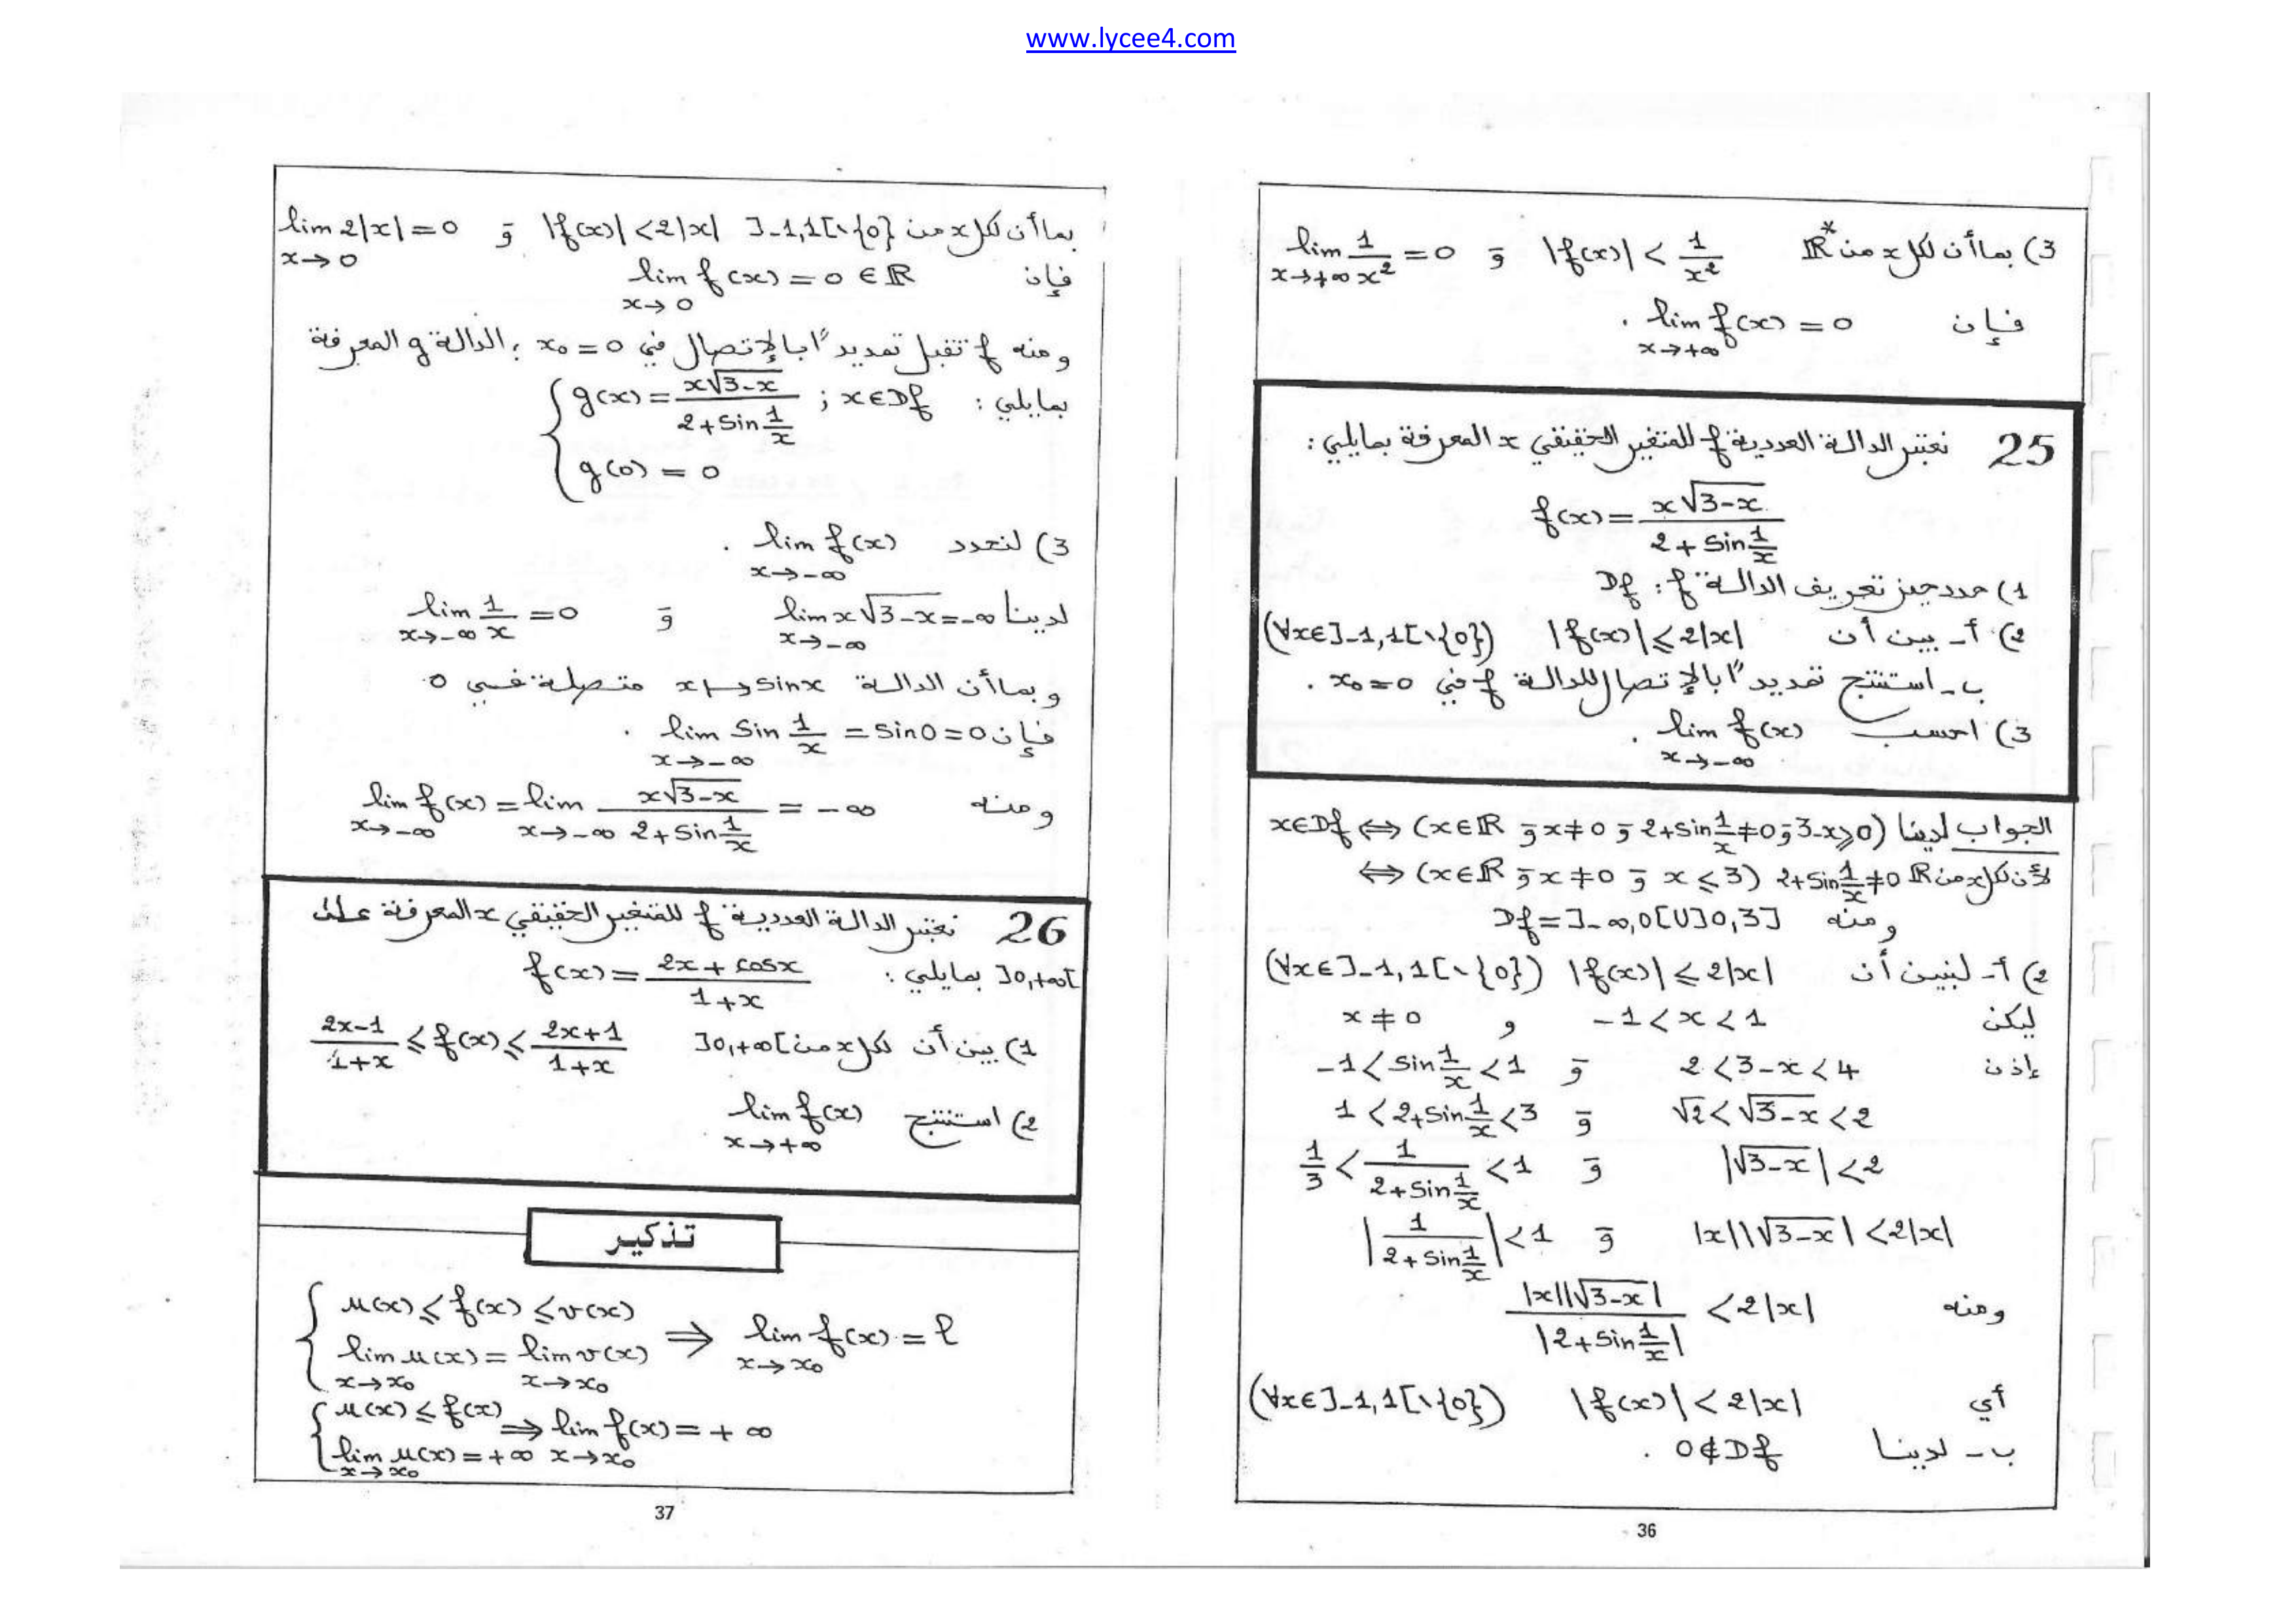 www.lycee4.com
3) بما أن لكل x من ℝ* |f(x)| < 1/x² وَ lim_{x→+∞} 1/x² = 0
فإن lim_{x→+∞} f(x) = 0 .
25 نعتبر الدالة العددية f للمتغير الحقيقي x المعرفة بمايلي :
f(x) = x√(3-x) / (2 + sin 1/x)
1) حدد حيز تعريف الدالة f : Df
2) أ - بين أن |f(x)| ≤ 2|x| (∀x∈]-1,1[\{0})
ب - استنتج تمديداً بالإتصال للدالة f في x₀=0 .
3) احسب lim_{x→-∞} f(x) .
الجواب لدينا x∈Df ⟺ (x∈ℝ وَ x≠0 وَ 2+sin 1/x ≠0 وَ 3-x≥0)
⟺ (x∈ℝ وَ x≠0 وَ x≤3) لأن لكل x من ℝ 2+sin 1/x ≠0
ومنه Df = ]-∞,0[∪]0,3]
2) أ - لنبين أن |f(x)| ≤ 2|x| (∀x∈]-1,1[\{0})
ليكن -1<x<1 و x≠0
إذن 2<3-x<4 وَ -1<sin 1/x<1
√2<√(3-x)<2 وَ 1<2+sin 1/x<3
|√(3-x)|<2 وَ 1/3 < 1/(2+sin 1/x) < 1
|x||√(3-x)| <2|x| وَ |1/(2+sin 1/x)|<1
ومنه |x||√(3-x)| / |2+sin 1/x| <2|x|
أي |f(x)|<2|x| (∀x∈]-1,1[\{0})
ب - لدينا 0∉Df .
36
بما أن لكل x من ]-1,1[\{0} |f(x)|<2|x| وَ lim_{x→0} 2|x|=0
فإن lim_{x→0} f(x)=0∈ℝ
ومنه f تقبل تمديداً بالإتصال في x₀=0 ; الدالة g المعرفة
بمايلي : { g(x) = x√(3-x) / (2+sin 1/x) ; x∈Df
g(0) = 0
3) لنحدد lim_{x→-∞} f(x) .
لدينا lim_{x→-∞} x√(3-x)=-∞ وَ lim_{x→-∞} 1/x =0
وبما أن الدالة x↦sinx متصلة في 0
فإن lim_{x→-∞} sin 1/x = sin0=0 .
ومنه lim_{x→-∞} f(x) = lim_{x→-∞} x√(3-x) / (2+sin 1/x) = -∞
26 نعتبر الدالة العددية f للمتغير الحقيقي x المعرفة على
]0,+∞[ بمايلي : f(x) = (2x+cosx)/(1+x)
1) بين أن لكل x من ]0,+∞[ (2x-1)/(1+x) ≤ f(x) ≤ (2x+1)/(1+x)
2) استنتج lim_{x→+∞} f(x)
تذكير
{ u(x) ≤ f(x) ≤ v(x)
lim_{x→x₀} u(x) = lim_{x→x₀} v(x) ⟹ lim_{x→x₀} f(x) = ℓ
{ u(x) ≤ f(x) ⟹ lim_{x→x₀} f(x) = +∞
lim_{x→x₀} u(x) = +∞
37